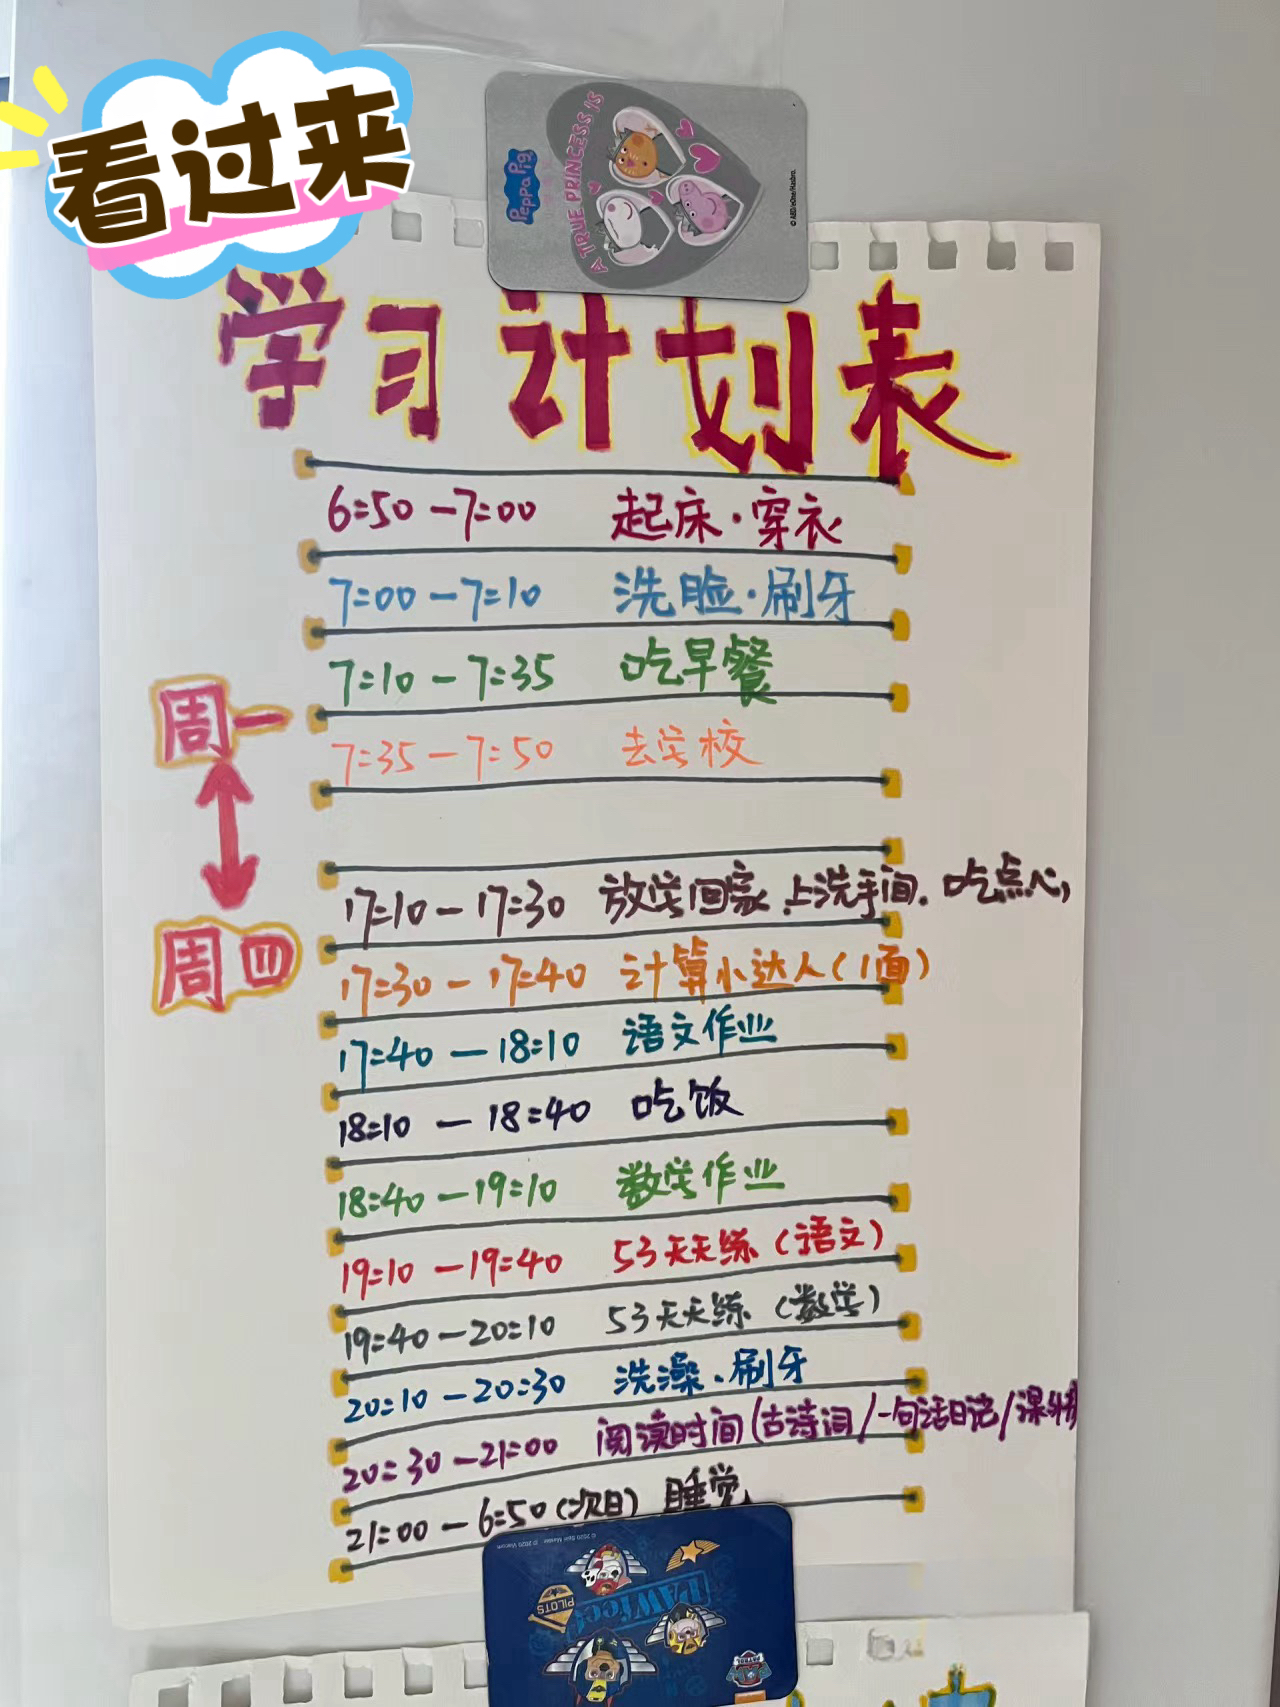 看过来
Peppa Pig
A TRUE PRINCESS IS
© ABD/eOne/Hasbro.
学习计划表
6:50-7:00 起床·穿衣
7:00-7:10 洗脸·刷牙
7:10-7:35 吃早餐
周一
7:35-7:50 去学校
17:10-17:30 放学回家.上洗手间.吃点心,
周四
17:30-17:40 计算小达人(1面)
17:40-18:10 语文作业
18:10-18:40 吃饭
18:40-19:10 数学作业
19:10-19:40 53天天练(语文)
19:40-20:10 53天天练(数学)
20:10-20:30 洗澡.刷牙
20:30-21:00 阅读时间(古诗词/一句话日记/课外
21:00-6:50(次日) 睡觉
PILOTS
PAWfect